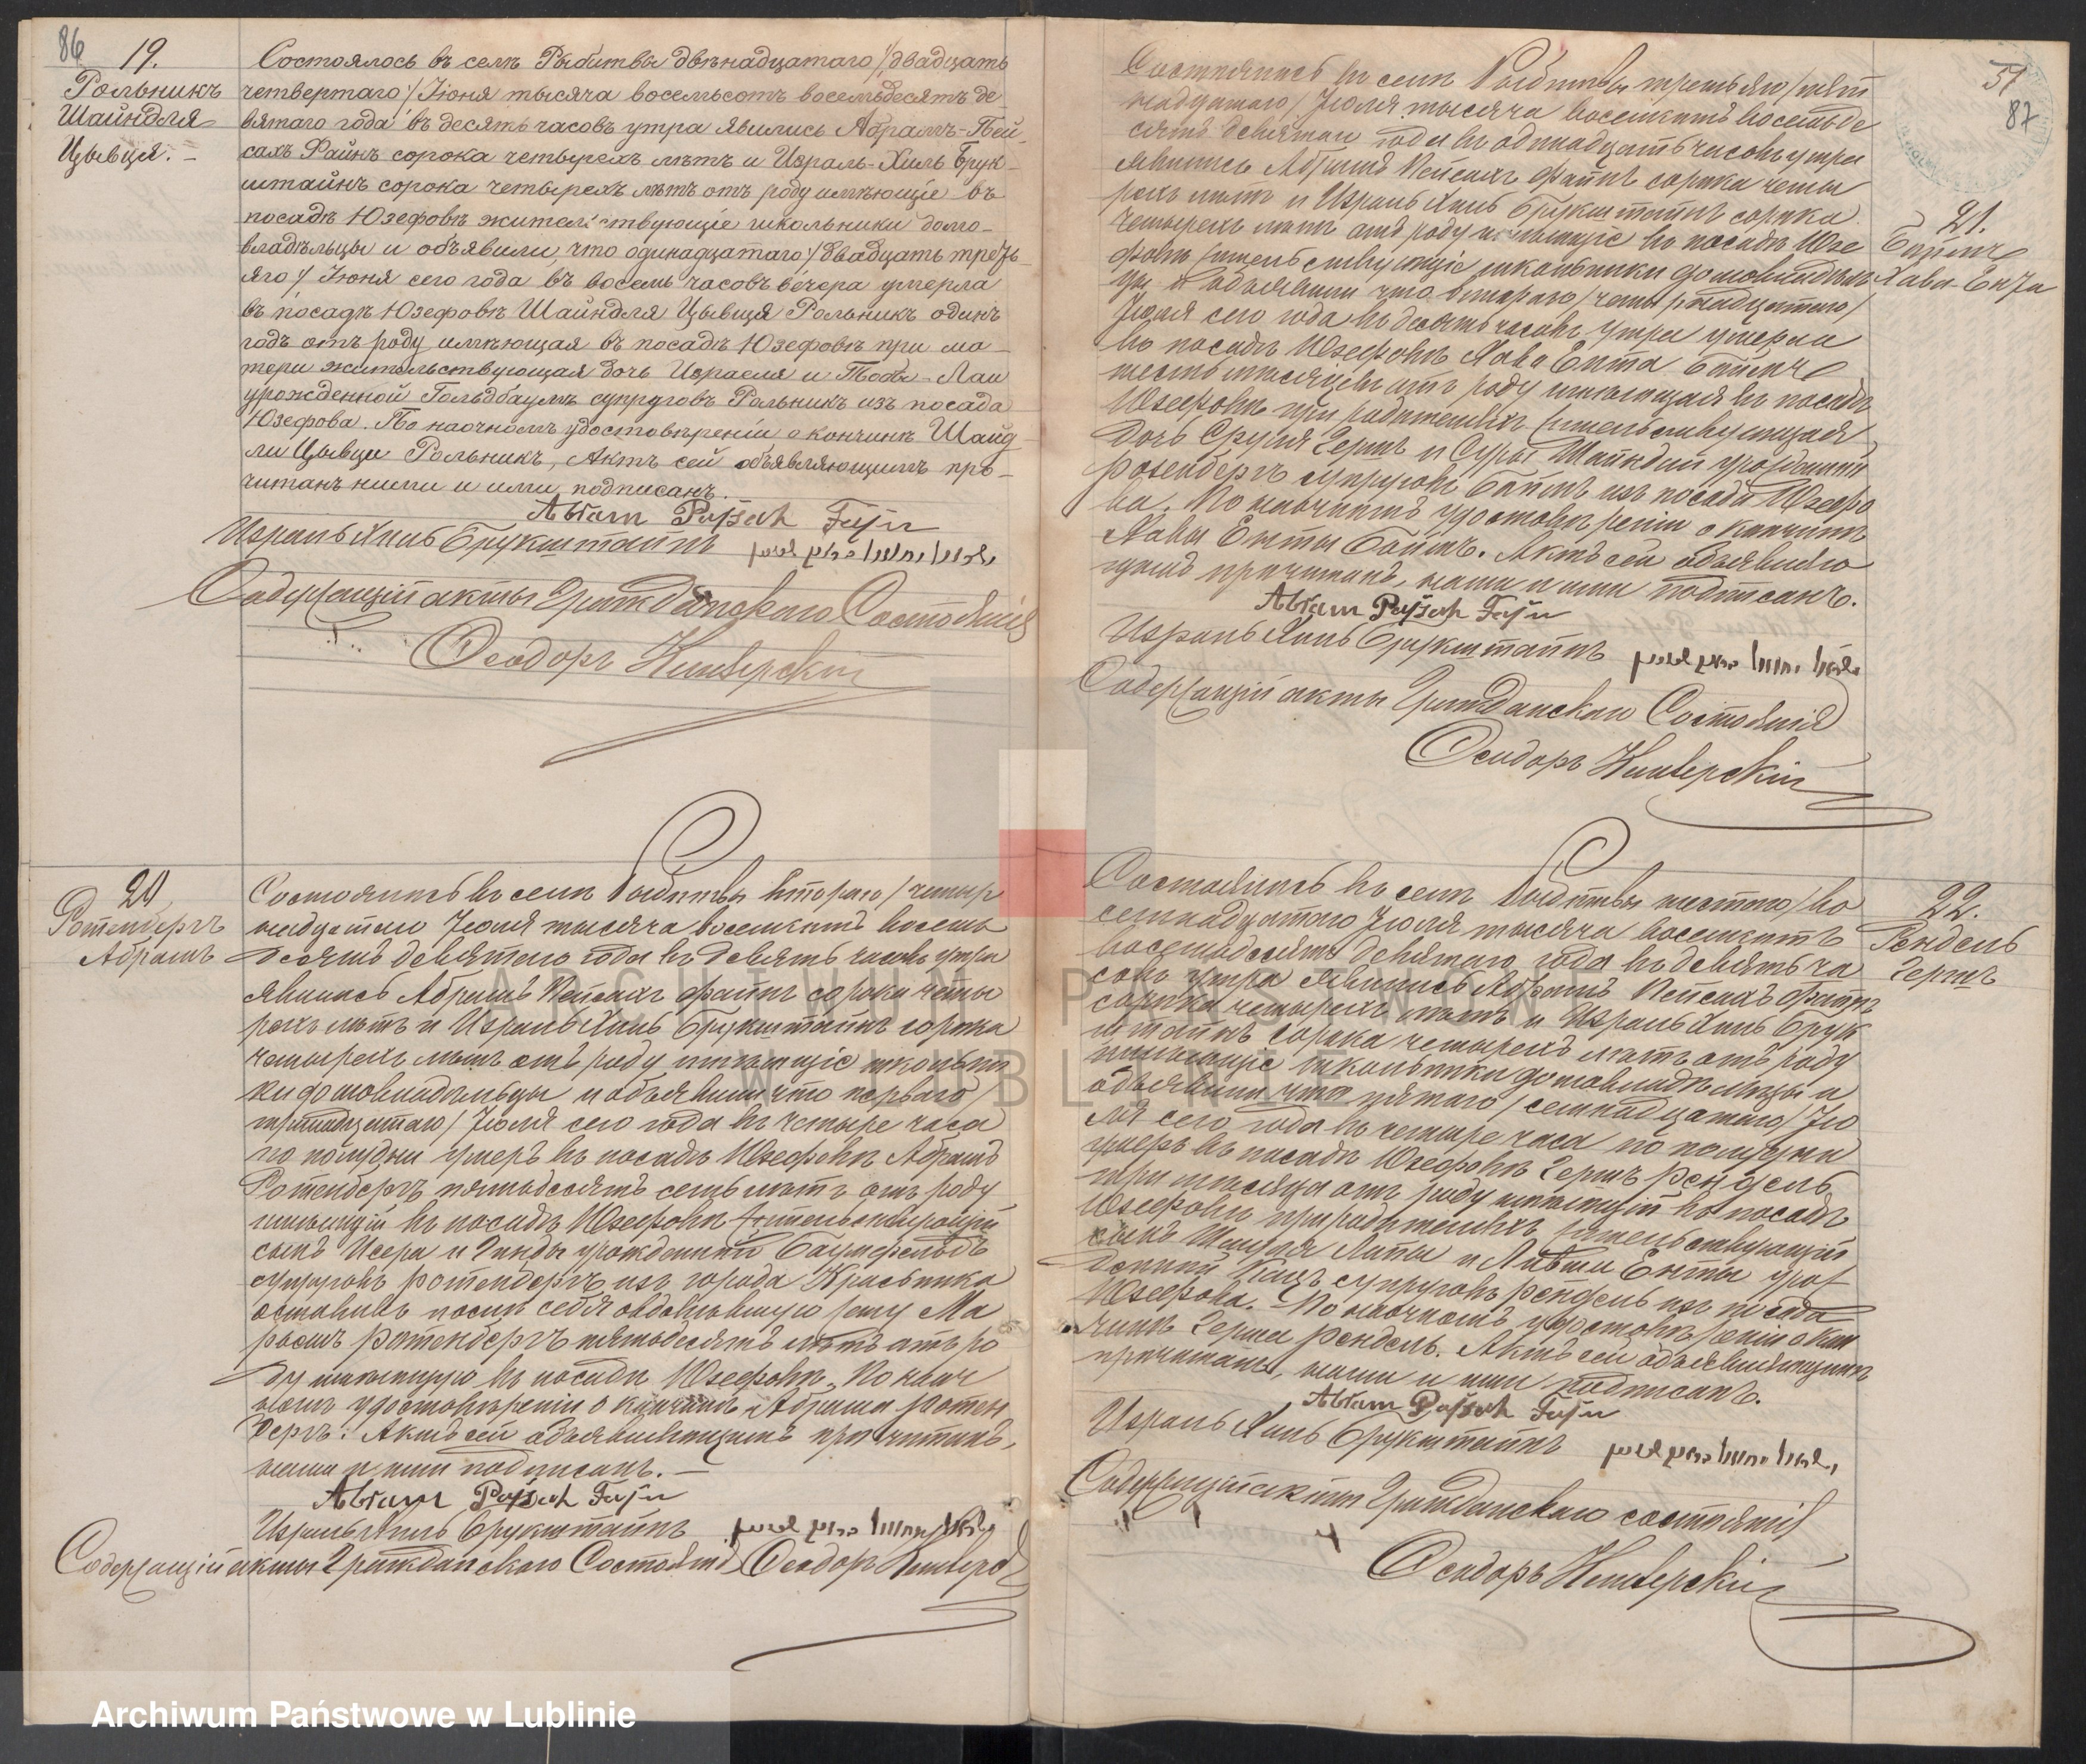 86
19.
Рольникъ
Шайндля
Цывця. –
Состоялось въ селѣ Рыбитвы двѣнадцатаго /двадцать
четвертаго/ Іюня тысяча восемьсотъ восемьдесятъ де-
вятаго года въ десять часовъ утра явились Абрамъ-Пей-
сахъ Файнъ сорока четырехъ лѣтъ и Израль-Хиль Брук-
штайнъ сорока четырехъ лѣтъ отъ роду имѣющіе въ
посадѣ Юзефовѣ жительствующіе школьники домо-
владѣльцы и объявили, что одинадцатаго /двадцать треть-
яго/ Іюня сего года въ восемь часовъ вечера умерла
въ посадѣ Юзефовѣ Шайндля Цывця Рольникъ одинъ
годъ отъ роду имѣющая въ посадѣ Юзефовѣ при ма-
тери жительствующая дочь Израеля и Тобы-Лаи
урожденной Гольдбаумъ супруговъ Рольникъ изъ посада
Юзефова. По наочномъ удостовѣреніи о кончинѣ Шайнд-
ли Цывци Рольникъ, Актъ сей объявляющимъ про-
читанъ нами и ими подписанъ.
Abram Pejsach Fajn
Израль Хиль Брукштайнъ
Содержащій акты Гражданскаго Состоянія
Ѳеодоръ
20
Ротенбергъ
Абрамъ
Состоялось въ селѣ Рыбитвы втораго /четыр
надцатаго Іюля тысяча восемьсотъ восемь
десятъ девятаго года въ девять часовъ утра
явились Абрамъ Пейсахъ Файнъ сорока четы
рехъ лѣтъ и Израль Хиль Брукштайнъ сорока
четырехъ лѣтъ отъ роду имѣющіе школьни
ки домовладѣльцы и объявили что перваго /
тринадцатаго/ Іюля сего года въ четыре часа
по полудни умеръ въ посадѣ Юзефовѣ Абрамъ
Ротенбергъ пятьдесятъ семь лѣтъ отъ роду
имѣющій въ посадѣ Юзефовѣ жительствующій
сынъ Исера и Гинды урожденной Баумфельдъ
супруговъ Ротенбергъ изъ города Красника
оставивъ послѣ себя овдовѣвшую жену Ма
Ротенбергъ пятьдесятъ лѣтъ отъ ро
ду имѣющую въ посадѣ Юзефовѣ. По наоч
номъ удостовѣреніи о кончинѣ Абрама Ротен
бергъ. Актъ сей объявляющимъ прочитанъ,
нами и ими подписанъ. –
Abram Pejsach Fajn
Израль Хиль Брукштайнъ
Содержащій акты Гражданскаго Состоянія Ѳеодоръ
51
87
21.
Хава-Ента
Состоялось въ селѣ Рыбитвы третьяго /пят
надцатаго/ Іюля тысяча восемьсотъ восемьде
сятъ девятаго года въ одинадцать часовъ утра
явились Абрамъ Пейсахъ Файнъ сорока четы
рехъ лѣтъ и Израль Хиль Брукштайнъ сорока
четырехъ лѣтъ отъ роду имѣющіе въ посадѣ Юзе
фовѣ жительствующіе школьники домовладѣль
цы и объявили что втораго /четырнадцатаго/
Іюля сего года въ десять часовъ утра умерла
въ посадѣ Юзефовѣ Хава Ента
мѣсяцевъ отъ роду имѣющая въ посадѣ
Юзефовѣ при родителяхъ жительствующая
дочь Сруля Герша и Суры Шайндли урожденной
Розенбергъ супруговъ изъ посада Юзефо
ва. По наочномъ удостовѣреніи о кончинѣ
Хавы Енты Актъ сей объявляю
щимъ прочитанъ, нами и ими подписанъ.
Abram Pejsach Fajn
Израль Хиль Брукштайнъ
Содержащій акты Гражданскаго Состоянія
Ѳеодоръ
22.
Рендель
Гершъ
Состоялось въ селѣ Рыбитвы шестаго /во
семнадцатаго Іюля тысяча восемьсотъ
восемьдесятъ девятаго года въ девять ча
совъ утра явились Абрамъ Пейсахъ Файнъ
сорока четырехъ лѣтъ и Израль Хиль Брук
штайнъ сорока четырехъ лѣтъ отъ роду
имѣющіе школьники домовладѣльцы и
объявили что пятаго /семнадцатаго/ Ію
ля сего года въ четыре часа по полудни
умеръ въ посадѣ Юзефовѣ Гершъ Рендель
три мѣсяца отъ роду имѣющій въ посадѣ
Юзефовѣ при родителяхъ жительствующій
сынъ и Енты урож
денной Кацъ супруговъ Рендель изъ посада
Юзефова. По наочномъ удостовѣреніи о кон
чинѣ Герша Рендель. Актъ сей объявляющимъ
прочитанъ, нами и ими подписанъ.
Abram Pejsach Fajn
Израль Хиль Брукштайнъ
Содержащій акты Гражданскаго состоянія
Ѳеодоръ
ARCHIWUM PAŃSTWOWE
W LUBLINIE
Archiwum Państwowe w Lublinie